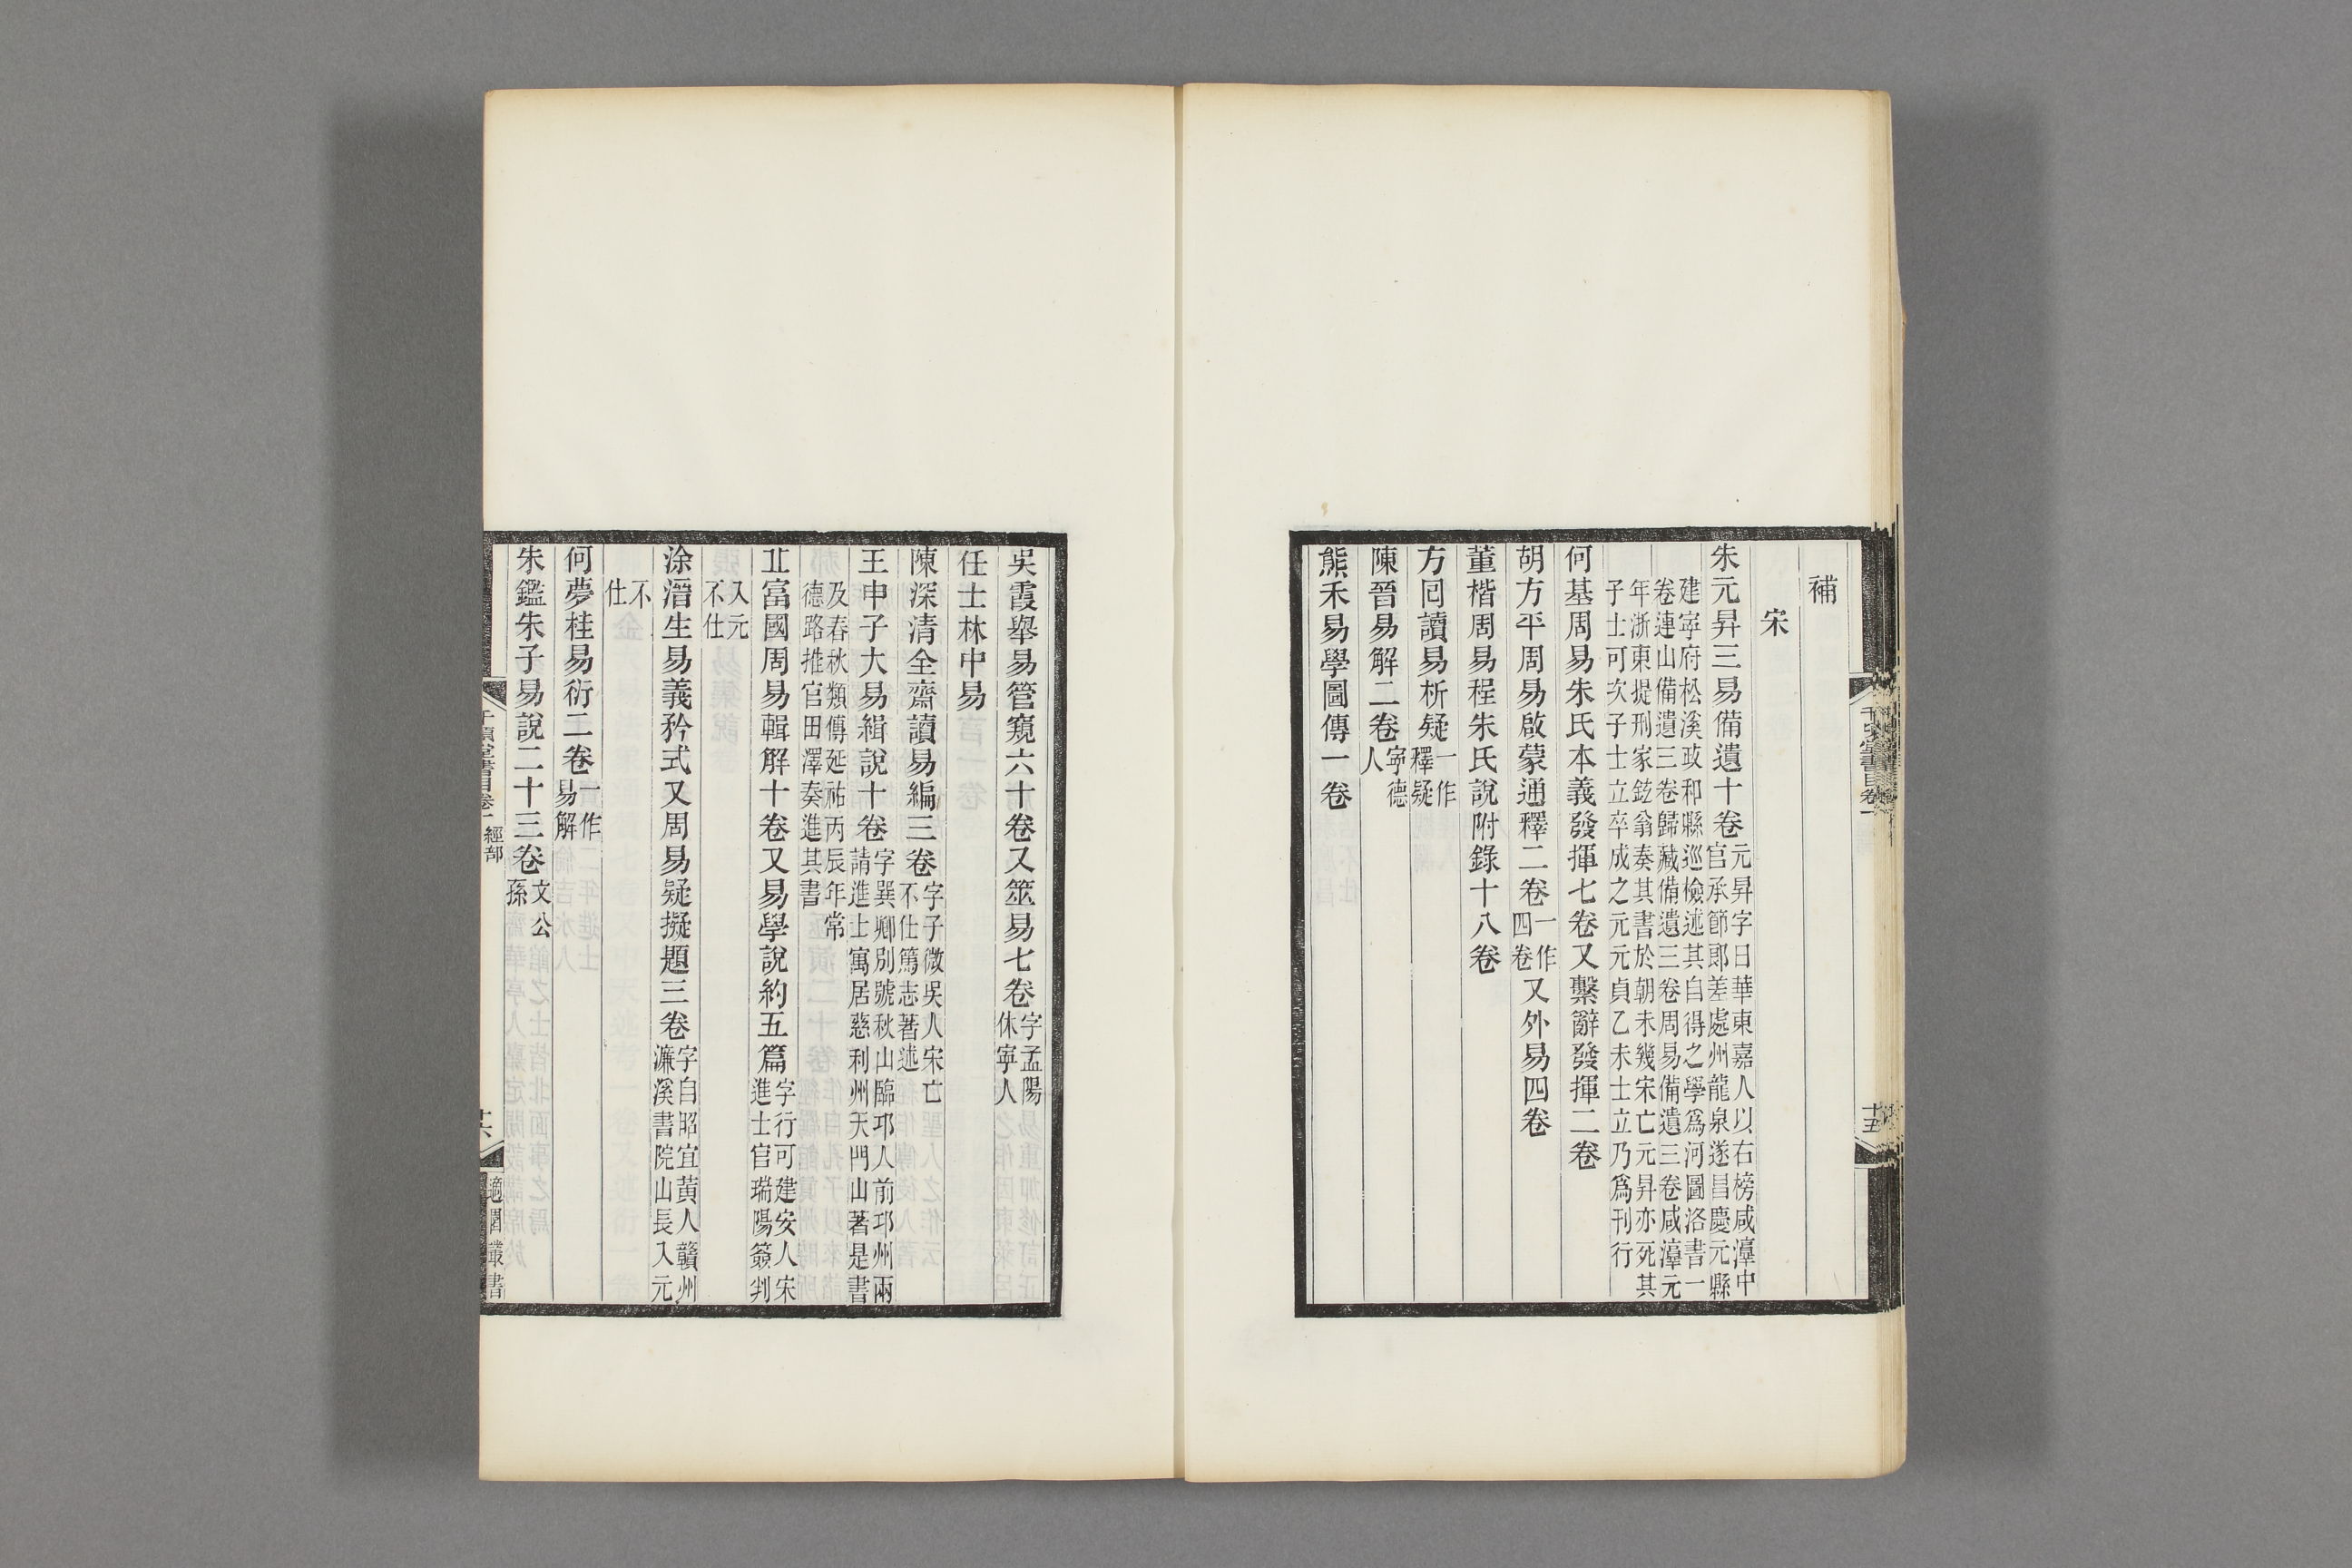 補
宋
朱元昇三易備遺十卷元昇字日華東嘉人以右榜咸湻中
官承節郎差處州龍泉遂昌慶元縣
建寧府松溪政和縣巡檢述其自得之學爲河圖洛書一
卷連山備遺三卷歸藏備遺三卷周易備遺三卷咸湻元
年浙東提刑家鉉翁奏其書於朝未幾宋亡元昇亦死其
子士可次子士立卒成之元元貞乙未士立乃爲刊行
何基周易朱氏本義發揮七卷又繫辭發揮二卷
胡方平周易啟蒙通釋二卷一作
四卷又外易四卷
董楷周易程朱氏說附錄十八卷
方回讀易析疑一作
釋疑
陳晉易解二卷寧德
人
熊禾易學圖傳一卷
吳霞舉易管窺六十卷又筮易七卷字孟陽
休寧人
任士林中易
陳深清全齋讀易編三卷字子微吳人宋亡
不仕篤志著述
王申子大易緝說十卷字巽卿別號秋山臨邛人前邛州兩
請進士寓居慈利州天門山著是書
及春秋類傳延祐丙辰年常
德路推官田澤奏進其書
丘富國周易輯解十卷又易學說約五篇字行可建安人宋
進士官瑞陽簽判
入元
不仕
涂溍生易義矜式又周易疑擬題三卷字自昭宜黃人贛州
濂溪書院山長入元
不
仕
何夢桂易衍二卷一作
易解
朱鑑朱子易說二十三卷文公
孫
千頃堂書目卷一 經部
十六
適園叢書